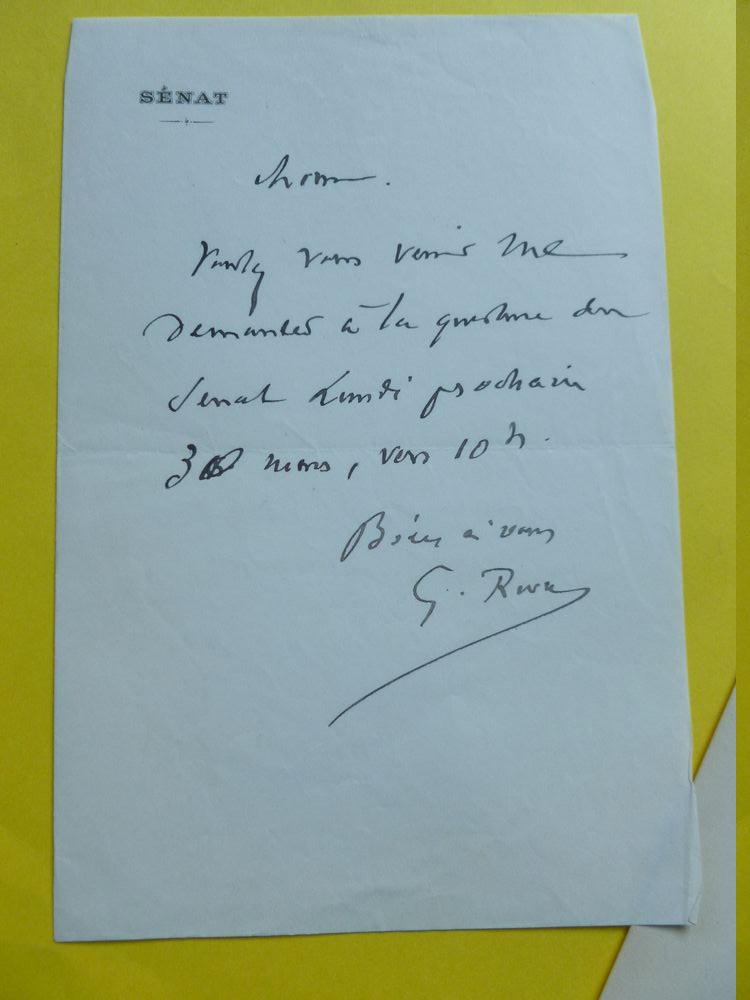 SÉNAT
Voulez vous venir me
demander à la questure du
Sénat Lundi prochain
30 mars, vers 10 h.
Bien à vous
G. Rivet